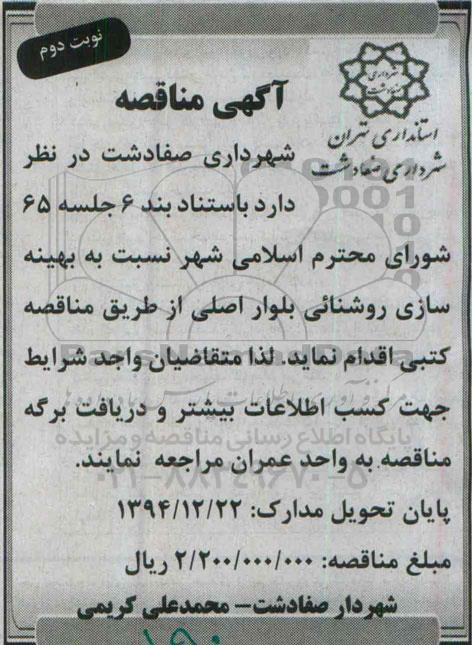 نوبت دوم
شهرداری
صفادشت
استانداری تهران
شهرداری صفادشت
آگهی مناقصه
شهرداری صفادشت در نظر
دارد باستناد بند ۶ جلسه ۶۵
شورای محترم اسلامی شهر نسبت به بهینه
سازی روشنائی بلوار اصلی از طریق مناقصه
کتبی اقدام نماید. لذا متقاضیان واجد شرایط
جهت کسب اطلاعات بیشتر و دریافت برگه
پایگاه اطلاع رسانی مناقصه و مزایده
مناقصه به واحد عمران مراجعه نمایند.
۰۲۱-۸۸۳۴۹۶۷۰-۵
پایان تحویل مدارک: ۱۳۹۴/۱۲/۲۲
مبلغ مناقصه: ۲/۲۰۰/۰۰۰/۰۰۰ ریال
شهردار صفادشت- محمدعلی کریمی